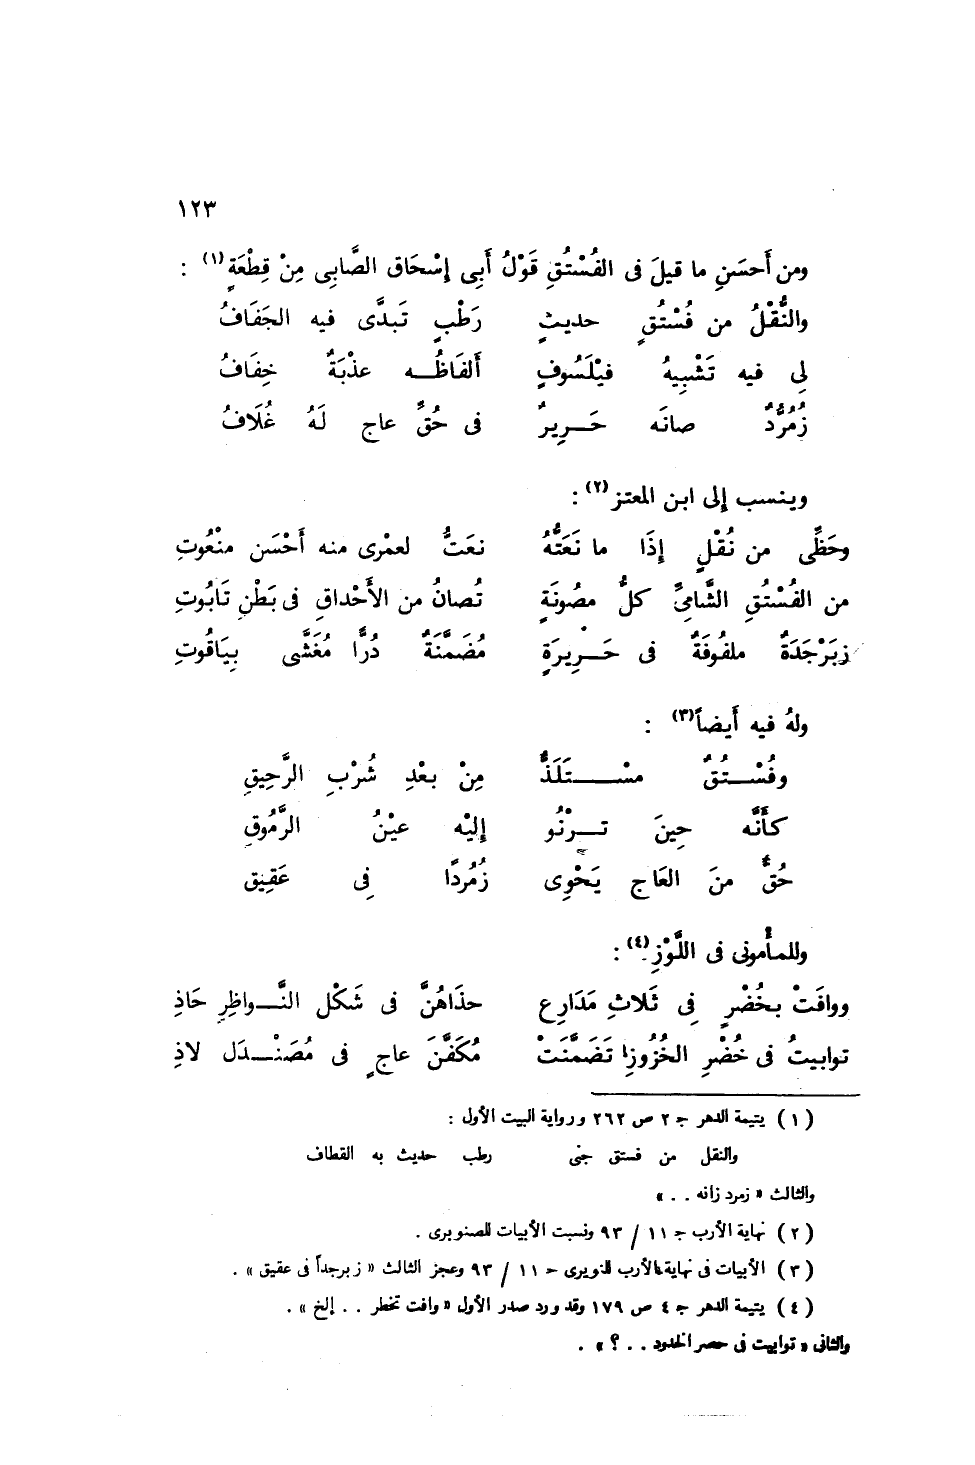 ١٢٣
ومن أَحسَنِ ما قيلَ فى الفُسْتُقِ قَوْلُ أَبِى إِسْحَاق الصَّابِى مِنْ قِطْعَةٍ (١) :
والنُّقْلُ من فُسْتُقٍ حديثٍ رَطْبٍ تَبدَّى فيه الجَفَافُ
لِى فيه تَشْبِيهُ فَيْلَسُوفٍ أَلفَاظُـــه عذْبَةٌ خِفَافُ
زُمُرُّدٌ صانَه حَـــرِيرٌ فى حُقِّ عاج لَهُ غُلَافُ
وينسب إلى ابن المعتز (٢) :
وحَظِّى من نُقْلٍ إِذَا ما نَعَتُّهُ نعَتُّ لعمْرى منه أَحْسَن منْعُوتِ
من الفُسْتُقِ الشَّامِىِّ كلُّ مصُونَةٍ تُصانُ من الأَحْداقِ فى بَطْنِ تَابُوتِ
زبَرْجَدَةٌ ملفُوفَةٌ فى حَـــرِيرَةٍ مُضَمَّنَةٌ دُرًّا مُغَشَّى بِيَاقُوتِ
ولهُ فيه أَيضاً (٣) :
وفُسْـــتُقٌ مسْـــــتَلَذٌّ مِنْ بعْدِ شُرْبِ الرَّحِيقِ
كأَنَّه حِينَ تـــرْنُو إِلَيْه عيْنُ الرَّمُوقِ
حُقٌّ منَ العَاج يَحْوِى زُمُردًا فِى عَقِيق
وللمأْمونى فى اللَّوْزِ (٤) :
ووافَتْ بخُضْرٍ فِى ثَلاثِ مَدَارِع حذَاهُنَّ فى شَكْل النَّـــواظِرِ حَاذِ
توابيتُ فى خُضْرِ الخُزُوزِ تَضَمَّنَتْ مُكَفَّنَ عاجٍ فى مُصَنْـــدَل لاذِ
( ١ ) يتيمة الدهر ج ٢ ص ٢٦٢ ورواية البيت الأول :
والنقل من فستق جنى رطب حديث به القطاف
والثالث « زمرد زانه . . »
( ٢ ) نهاية الأرب ج ١١ / ٩٣ ونسبت الأبيات للصنوبرى .
( ٣ ) الأبيات فى نهاية الأرب للنويرى ج ١١ / ٩٣ وعجز الثالث « زبرجداً فى عقيق » .
( ٤ ) يتيمة الدهر ج ٤ ص ١٧٩ وقد ورد صدر الأول « وافت تخطر . . إلخ » .
والثانى « توابيت فى حصر الخدود . . ؟ » .